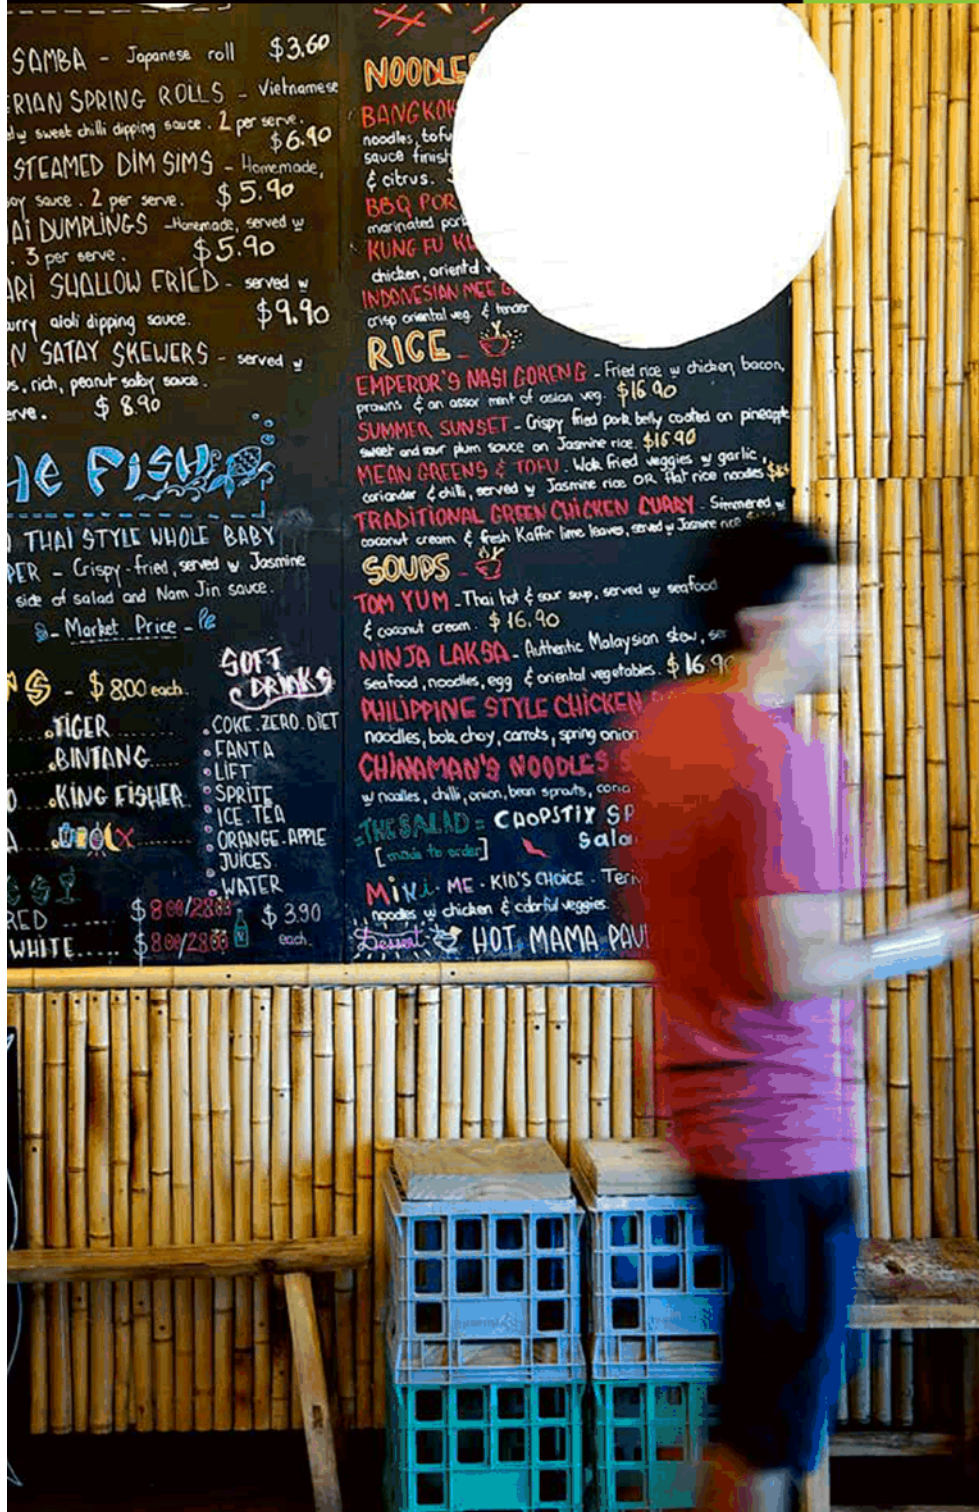 SAMBA - Japanese roll $3.60
RIAN SPRING ROLLS - Vietnamese
w sweet chilli dipping sauce. 2 per serve.
$6.90
STEAMED DIM SIMS - Homemade,
oy sauce. 2 per serve. $5.90
AI DUMPLINGS - Homemade, served w
. 3 per serve. $5.90
ARI SHALLOW FRIED - served w
urry aioli dipping sauce. $9.90
N SATAY SKEWERS - served w
s, rich, peanut satay sauce.
erve. $8.90
HE FISH
THAI STYLE WHOLE BABY
PER - Crispy-fried, served w Jasmine
side of salad and Nam Jin sauce.
- Market Price -
S - $8.00 each.
TIGER
BINTANG
KING FISHER
RED ...... $8.00/28.00
WHITE..... $8.00/28.00
SOFT
DRINKS
COKE.ZERO.DIET
FANTA
LIFT
SPRITE
ICE.TEA
ORANGE.APPLE
JUICES
WATER
$3.90
each.
NOODLE
BANGKOK
noodles, tofu
sauce finish
& citrus.
BBQ POR
marinated pork
KUNG FU
chicken, oriental
INDONESIAN MEE G
crisp oriental veg. & tender
RICE -
EMPEROR'S NASI GORENG - Fried rice w chicken, bacon,
prawns & an assor ment of asian veg. $16.90
SUMMER SUNSET - Crispy fried pork belly coated on pineapple
sweet and sour plum sauce on Jasmine rice. $16.90
MEAN GREENS & TOFU. Wok fried veggies w garlic,
coriander & chilli, served w Jasmine rice OR flat rice noodles
TRADITIONAL GREEN CHICKEN CURRY - Simmered w
coconut cream & fresh Kaffir lime leaves, served w Jasmine rice
SOUPS -
TOM YUM - Thai hot & sour sup, served w seafood
& coconut cream. $16.90
NINJA LAKSA - Authentic Malaysian stew, ser
seafood, noodles, egg & oriental vegetables. $16.90
PHILIPPINE STYLE CHICKEN
noodles, bok choy, carrots, spring onion
CHINAMAN'S NOODLES S
w noodles, chilli, onion, bean sprouts, coria
THE SALAD = CHOPSTIX SP
[made to order] Sala
MiNi-ME - KID'S CHOICE - Teriy
noodles w chicken & colorful veggies.
Dessert HOT MAMA PAV